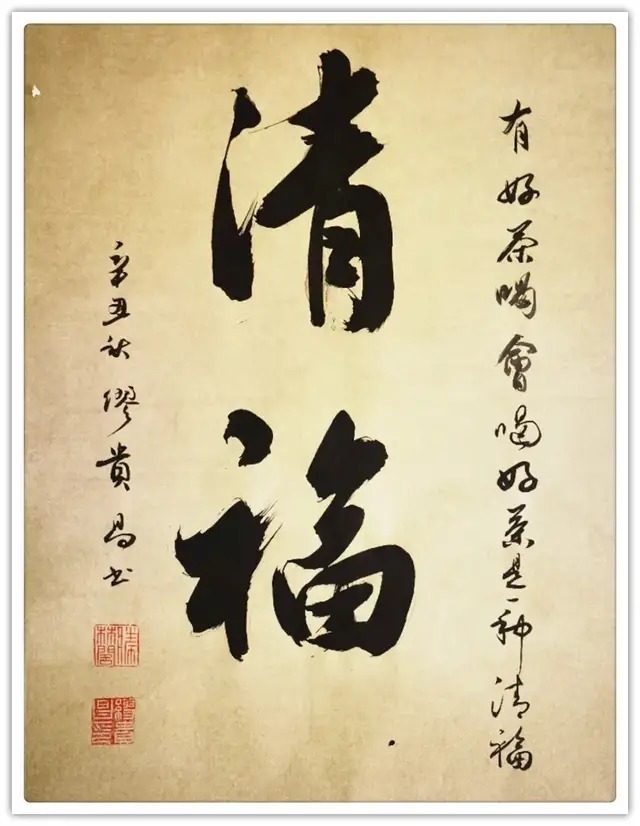 有好茶喝會喝好茶是一种清福
清福
辛丑秋缪貴昌书